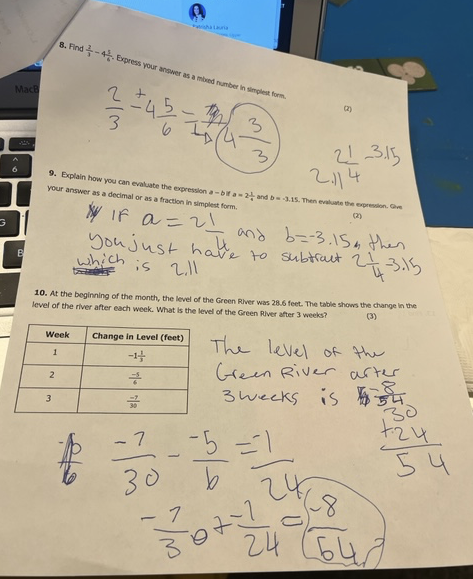 8. Find 2/3 - 4 5/6. Express your answer as a mixed number in simplest form.
(2)
2/3 + - 4 5/6 =
4 3/3
2 1/4 -3.15
2.11
9. Explain how you can evaluate the expression a - b if a = 2 1/4 and b = -3.15. Then evaluate the expression. Give
your answer as a decimal or as a fraction in simplest form.
(2)
IF a = 2 1/4 and b=-3.15, then
you just have to subtract 2 1/4 3.15
which is 2.11
10. At the beginning of the month, the level of the Green River was 28.6 feet. The table shows the change in the
level of the river after each week. What is the level of the Green River after 3 weeks?
(3)
Week Change in Level (feet)
1 -1 1/3
2 -5/6
3 -7/30
The level of the
Green River after
3 weeks is -8/54
30
+24
54
-7/30 - -5/6 = -1/24
-7/30 + -1/24 = -8/54